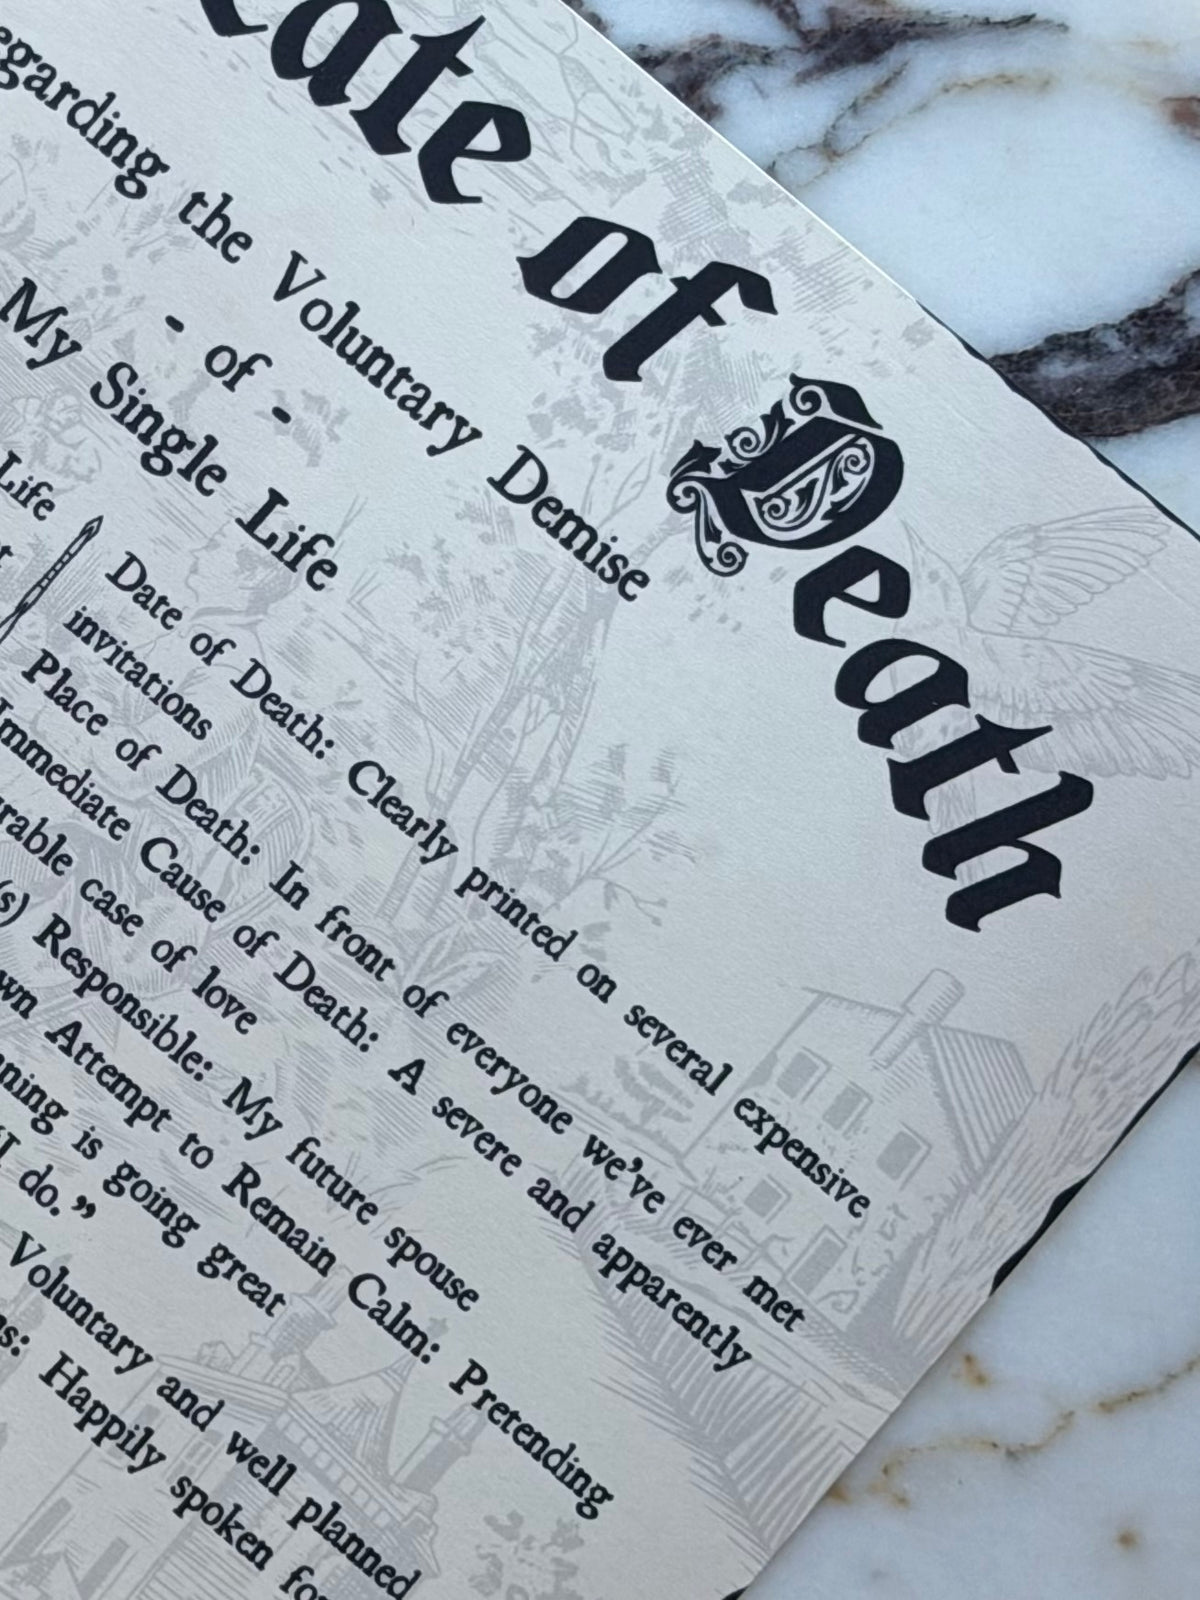 cate of Death
egarding the Voluntary Demise
- of -
My Single Life
Life
Date of Death: Clearly printed on several expensive
invitations
Place of Death: In front of everyone we've ever met
Immediate Cause of Death: A severe and apparently
urable case of love
(s) Responsible: My future spouse
wn Attempt to Remain Calm: Pretending
nning is going great
I do."
Voluntary and well planned
ns: Happily spoken for